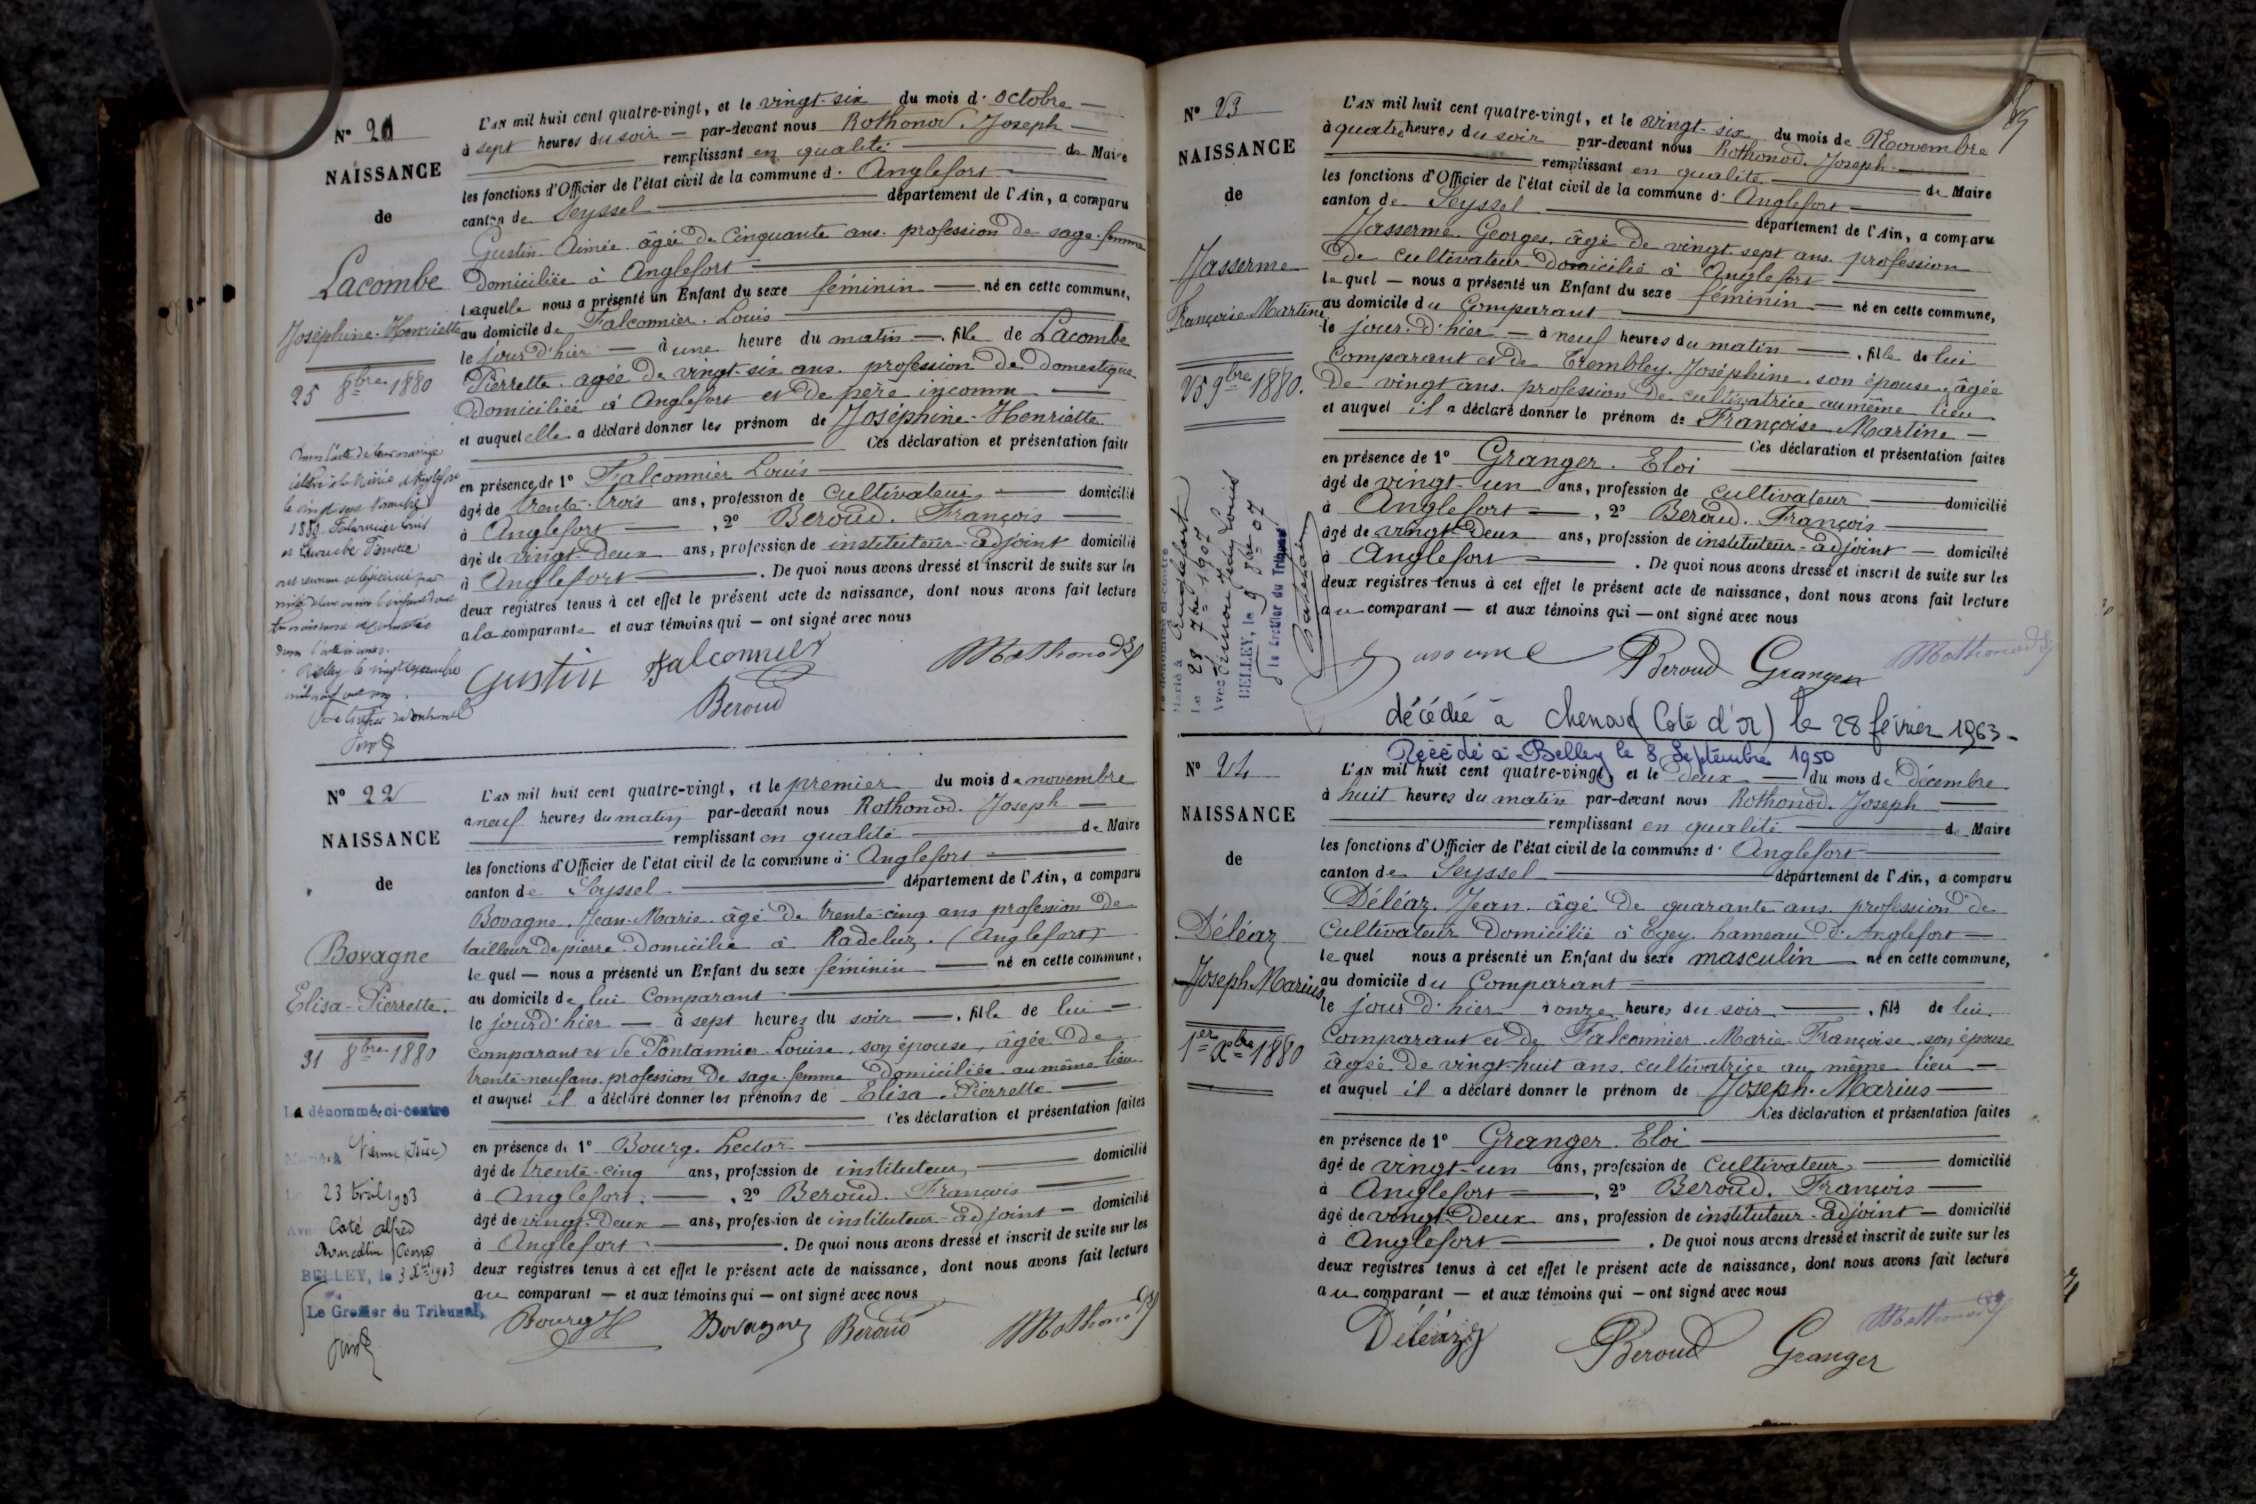 N° 21
NAISSANCE
de
Lacombe
Joséphine-Henriette
25 8bre 1880
L'AN mil huit cent quatre-vingt, et le vingt-six du mois d'octobre
à sept heures du soir par-devant nous Rothonod. Joseph
remplissant en qualité de Maire
les fonctions d'Officier de l'état civil de la commune d'Anglefort
canton de Seyssel département de l'Ain, a comparu
Gustin Aimée. âgée de Cinquante ans. profession de sage-femme
Domiciliée à Anglefort
laquelle nous a présenté un Enfant du sexe féminin né en cette commune,
au domicile de Falconnier. Louis
le jour d'hier à une heure du matin, fille de Lacombe
Pierrette. agée de vingt-six ans. profession de domestique
Domiciliée à Anglefort et de père inconnu
et auquel elle a déclaré donner les prénom de Joséphine-Henriette
Ces déclaration et présentation faites
en présence de 1° Falconnier Louis
âgé de trente-trois ans, profession de cultivateur domicilié
à Anglefort, 2° Beroud. François
âgé de vingt-deux ans, profession de instituteur-adjoint domicilié
à Anglefort. De quoi nous avons dressé et inscrit de suite sur les
deux registres tenus à cet effet le présent acte de naissance, dont nous avons fait lecture
a la comparante et aux témoins qui — ont signé avec nous
Gustin Falconnier
Beroud
N° 22
NAISSANCE
de
Bovagne
Elisa-Pierrette.
31 8bre 1880
La dénommée ci-contre
23 avril 1903
BELLEY, le 3 Xbre 1903
Le Greffier du Tribunal,
L'AN mil huit cent quatre-vingt, et le premier du mois de novembre
à neuf heures du matin par-devant nous Rothonod. Joseph
remplissant en qualité de Maire
les fonctions d'Officier de l'état civil de la commune d'Anglefort
canton de Seyssel département de l'Ain, a comparu
Bovagne. Jean-Marie. âgé de trente-cinq ans profession de
tailleur de pierre domicilié à Radeluz. (Anglefort)
le quel — nous a présenté un Enfant du sexe féminin né en cette commune,
au domicile de lui Comparant
le jour d'hier à sept heures du soir, fille de lui
comparant et de Pontannier Louise, son épouse, âgée de
trente-neuf ans. profession de sage-femme domiciliée au même lieu
et auquel il a déclaré donner les prénoms de Elisa. Pierrette
Ces déclaration et présentation faites
en présence de 1° Bourg. Hector
âgé de trente-cinq ans, profession de instituteur domicilié
à Anglefort, 2° Beroud. François
âgé de vingt-deux ans, profession de instituteur-adjoint domicilié
à Anglefort. De quoi nous avons dressé et inscrit de suite sur les
deux registres tenus à cet effet le présent acte de naissance, dont nous avons fait lecture
au comparant — et aux témoins qui — ont signé avec nous
Bourg H Bovagne Beroud
N° 23
NAISSANCE
de
Jasserme
Françoise Martine
25 9bre 1880.
Marié à Anglefort
Le 28 7bre 1907
BELLEY, le 9 8bre 07
Le Greffier du Tribunal
L'AN mil huit cent quatre-vingt, et le vingt-six du mois de Novembre
à quatre heures du soir par-devant nous Rothonod. Joseph
remplissant en qualité de Maire
les fonctions d'Officier de l'état civil de la commune d'Anglefort
canton de Seyssel département de l'Ain, a comparu
Jasserme. Georges. âgé de vingt-sept ans. profession
de cultivateur domicilié à Anglefort
le quel — nous a présenté un Enfant du sexe féminin né en cette commune,
au domicile du Comparant
le jour d'hier à neuf heures du matin, fille de lui
comparant et de Trembley. Joséphine. son épouse, âgée
de vingt ans. profession de cultivatrice au même lieu
et auquel il a déclaré donner le prénom de Françoise Martine
Ces déclaration et présentation faites
en présence de 1° Granger. Eloi
âgé de vingt-un ans, profession de cultivateur domicilié
à Anglefort, 2° Beroud. François
âgé de vingt-deux ans, profession de instituteur-adjoint domicilié
à Anglefort. De quoi nous avons dressé et inscrit de suite sur les
deux registres tenus à cet effet le présent acte de naissance, dont nous avons fait lecture
au comparant — et aux témoins qui — ont signé avec nous
Beroud Granger
décédée à Chenove (Côte d'or) le 28 février 1963
Décédé à Belley le 8 Septembre 1950
N° 24
NAISSANCE
de
Déléaz
Joseph Marius
1er Xbre 1880
L'AN mil huit cent quatre-vingt, et le deux du mois de décembre
à huit heures du matin par-devant nous Rothonod. Joseph
remplissant en qualité de Maire
les fonctions d'Officier de l'état civil de la commune d'Anglefort
canton de Seyssel département de l'Ain, a comparu
Déléaz. Jean. âgé de quarante ans. profession de
Cultivateur Domicilié à Egey. hameau d'Anglefort
le quel nous a présenté un Enfant du sexe masculin né en cette commune,
au domicile du Comparant
le jour d'hier à onze heures du soir, fils de lui
Comparant et de Falconnier. Marie Françoise son épouse
âgée de vingt-huit ans. cultivatrice au même lieu
et auquel il a déclaré donner le prénom de Joseph-Marius
Ces déclaration et présentation faites
en présence de 1° Granger. Eloi
âgé de vingt-un ans, profession de Cultivateur domicilié
à Anglefort, 2° Beroud. François
âgé de vingt-deux ans, profession de instituteur-adjoint domicilié
à Anglefort. De quoi nous avons dressé et inscrit de suite sur les
deux registres tenus à cet effet le présent acte de naissance, dont nous avons fait lecture
au comparant — et aux témoins qui — ont signé avec nous
Déléaz Beroud Granger